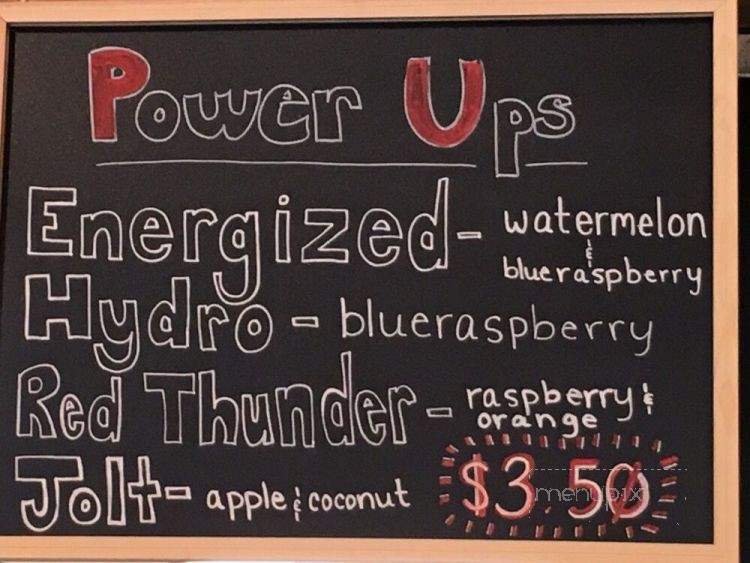 Power Ups
Energized- watermelon
&
blueraspberry
Hydro - blueraspberry
Red Thunder- raspberry &
orange
Jolt- apple & coconut
$3.50
menupix